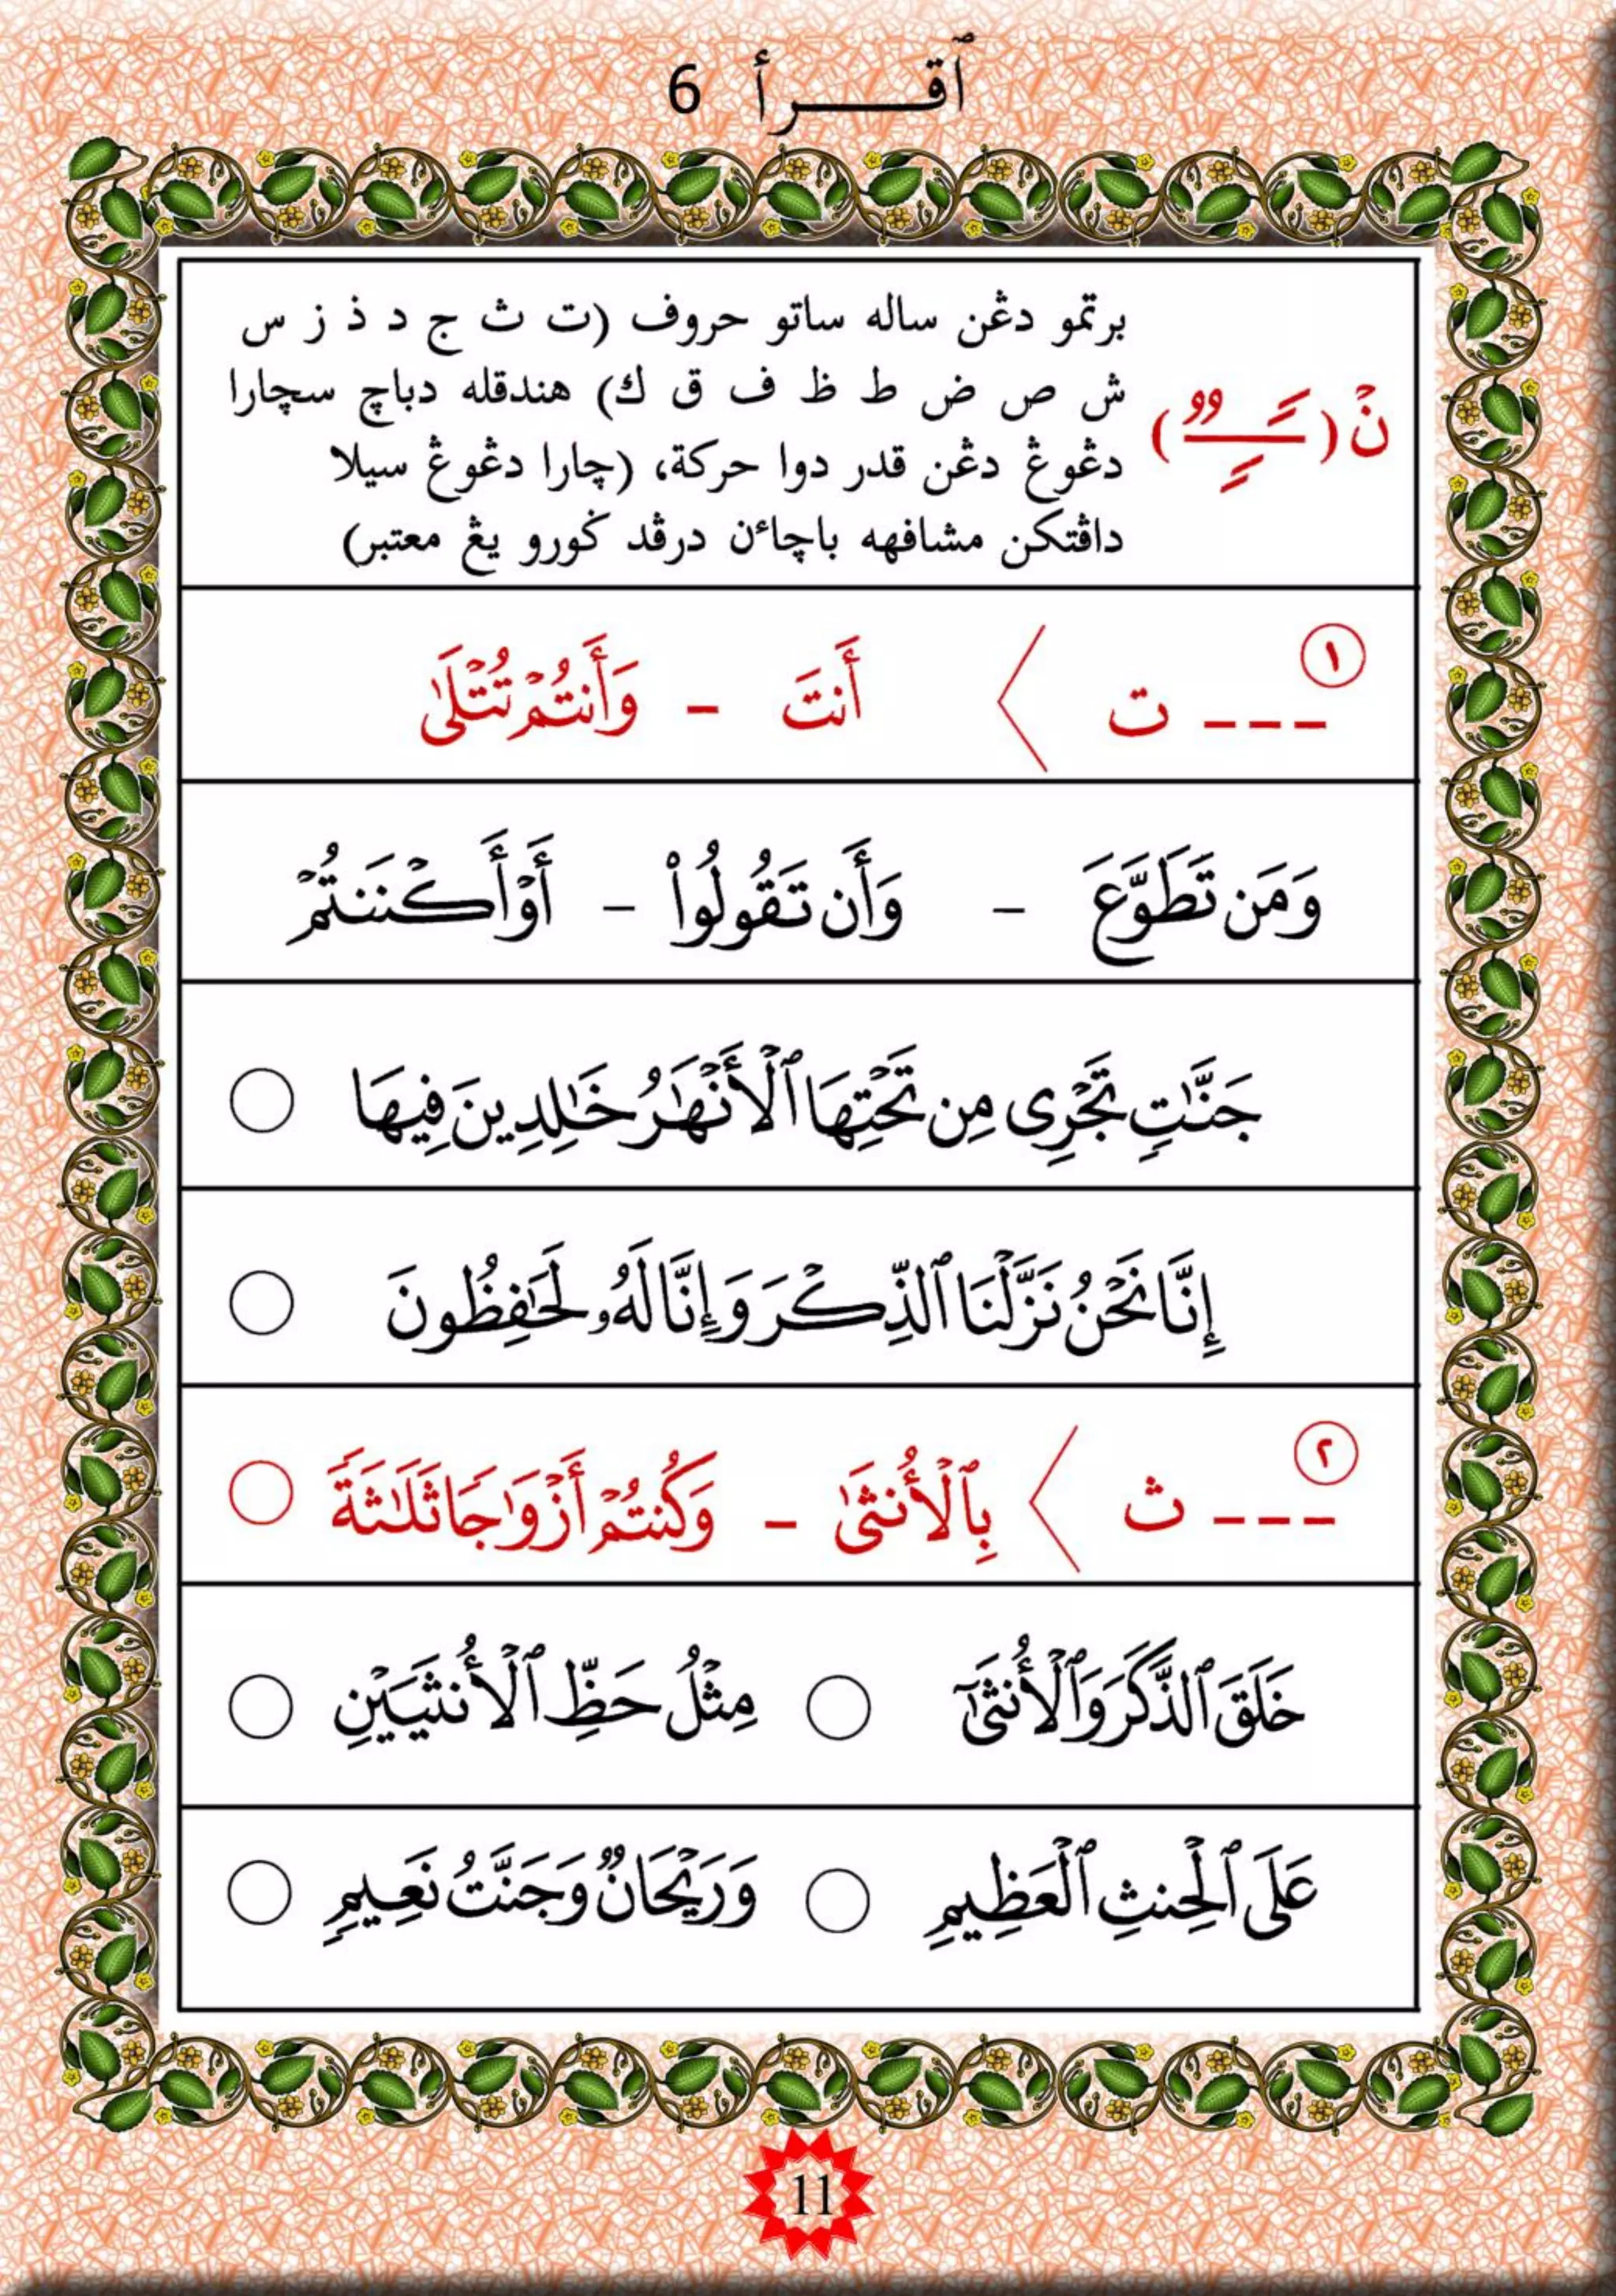 ٱقـــرأ 6
نۡ (ــًــٍــٌ) برتمو دڠن ساله ساتو حروف (ت ث ج د ذ ز س
ش ص ض ط ظ ف ق ك) هندقله دباچ سچارا
دڠوڠ دڠن قدر دوا حركة، (چارا دڠوڠ سيلا
داڤتكن مشافهه باچاءن درڤد ݢورو يڠ معتبر)
١ --- ت 〈 أَنتَ - وَأَنتُمۡ تُتۡلَىٰ
وَمَن تَطَوَّعَ - وَأَن تَقُولُواْ - أَوۡ أَكۡنَنتُمۡ
جَنَّٰتٍ تَجۡرِى مِن تَحۡتِهَا ٱلۡأَنۡهَٰرُ خَٰلِدِينَ فِيهَا ○
إِنَّا نَحۡنُ نَزَّلۡنَا ٱلذِّكۡرَ وَإِنَّا لَهُۥ لَحَٰفِظُونَ ○
٢ --- ث 〈 بِٱلۡأُنثَىٰ - وَكُنتُمۡ أَزۡوَٰجًا ثَلَٰثَةً ○
خَلَقَ ٱلذَّكَرَ وَٱلۡأُنثَىٰٓ ○ مِثۡلُ حَظِّ ٱلۡأُنثَيَيۡنِ ○
عَلَى ٱلۡحِنثِ ٱلۡعَظِيمِ ○ وَرَيۡحَانٌ وَجَنَّتُ نَعِيمٍ ○
11